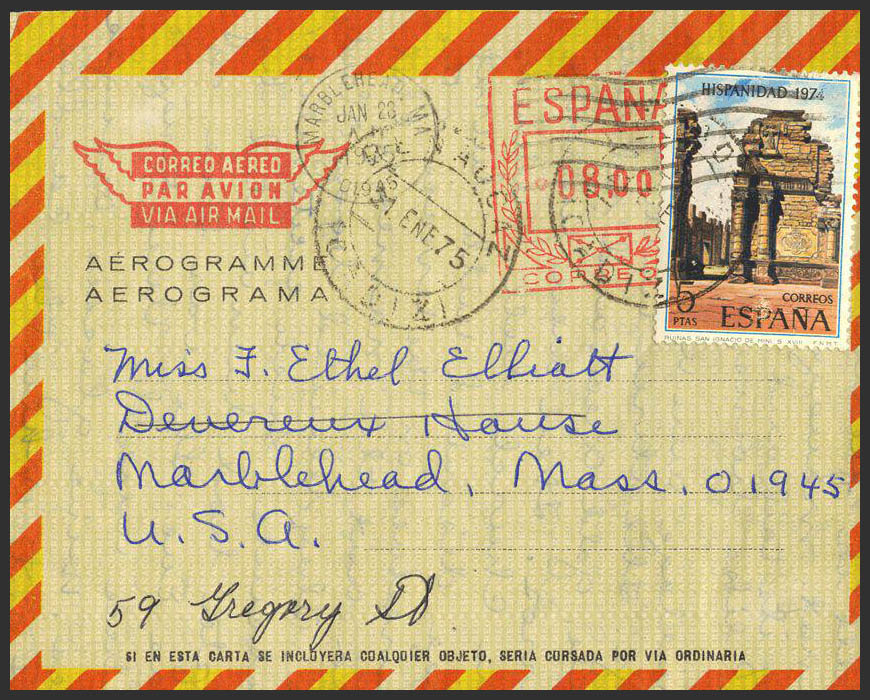 MARBLEHEAD, MA
JAN 28
01945
31 ENE 75
ESPAÑA
08.00
CORREO
HISPANIDAD 1974
CORREOS
5 PTAS ESPAÑA
RUINAS SAN IGNACIO DE MINI. S. XVIII F.N.M.T.
CORREO AEREO
PAR AVION
VIA AIR MAIL
AÉROGRAMME
AEROGRAMA
Miss F. Ethel Elliott
Devereux House
Marblehead, Mass. 01945
U.S.A.
59 Gregory St
SI EN ESTA CARTA SE INCLUYERA CUALQUIER OBJETO, SERIA CURSADA POR VIA ORDINARIA